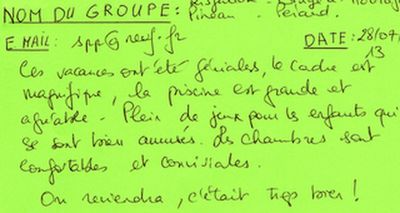 NOM DU GROUPE:
Pineau - Periard.
E MAIL: spp@neuf.fr
DATE: 28/07/
13
Ces vacances ont été géniales, le cadre est
magnifique, la piscine est grande et
agréable - Plein de jeux pour les enfants qui
se sont bien amusés. Les chambres sont
confortables et conviviales.
On reviendra, c'était trop bien !